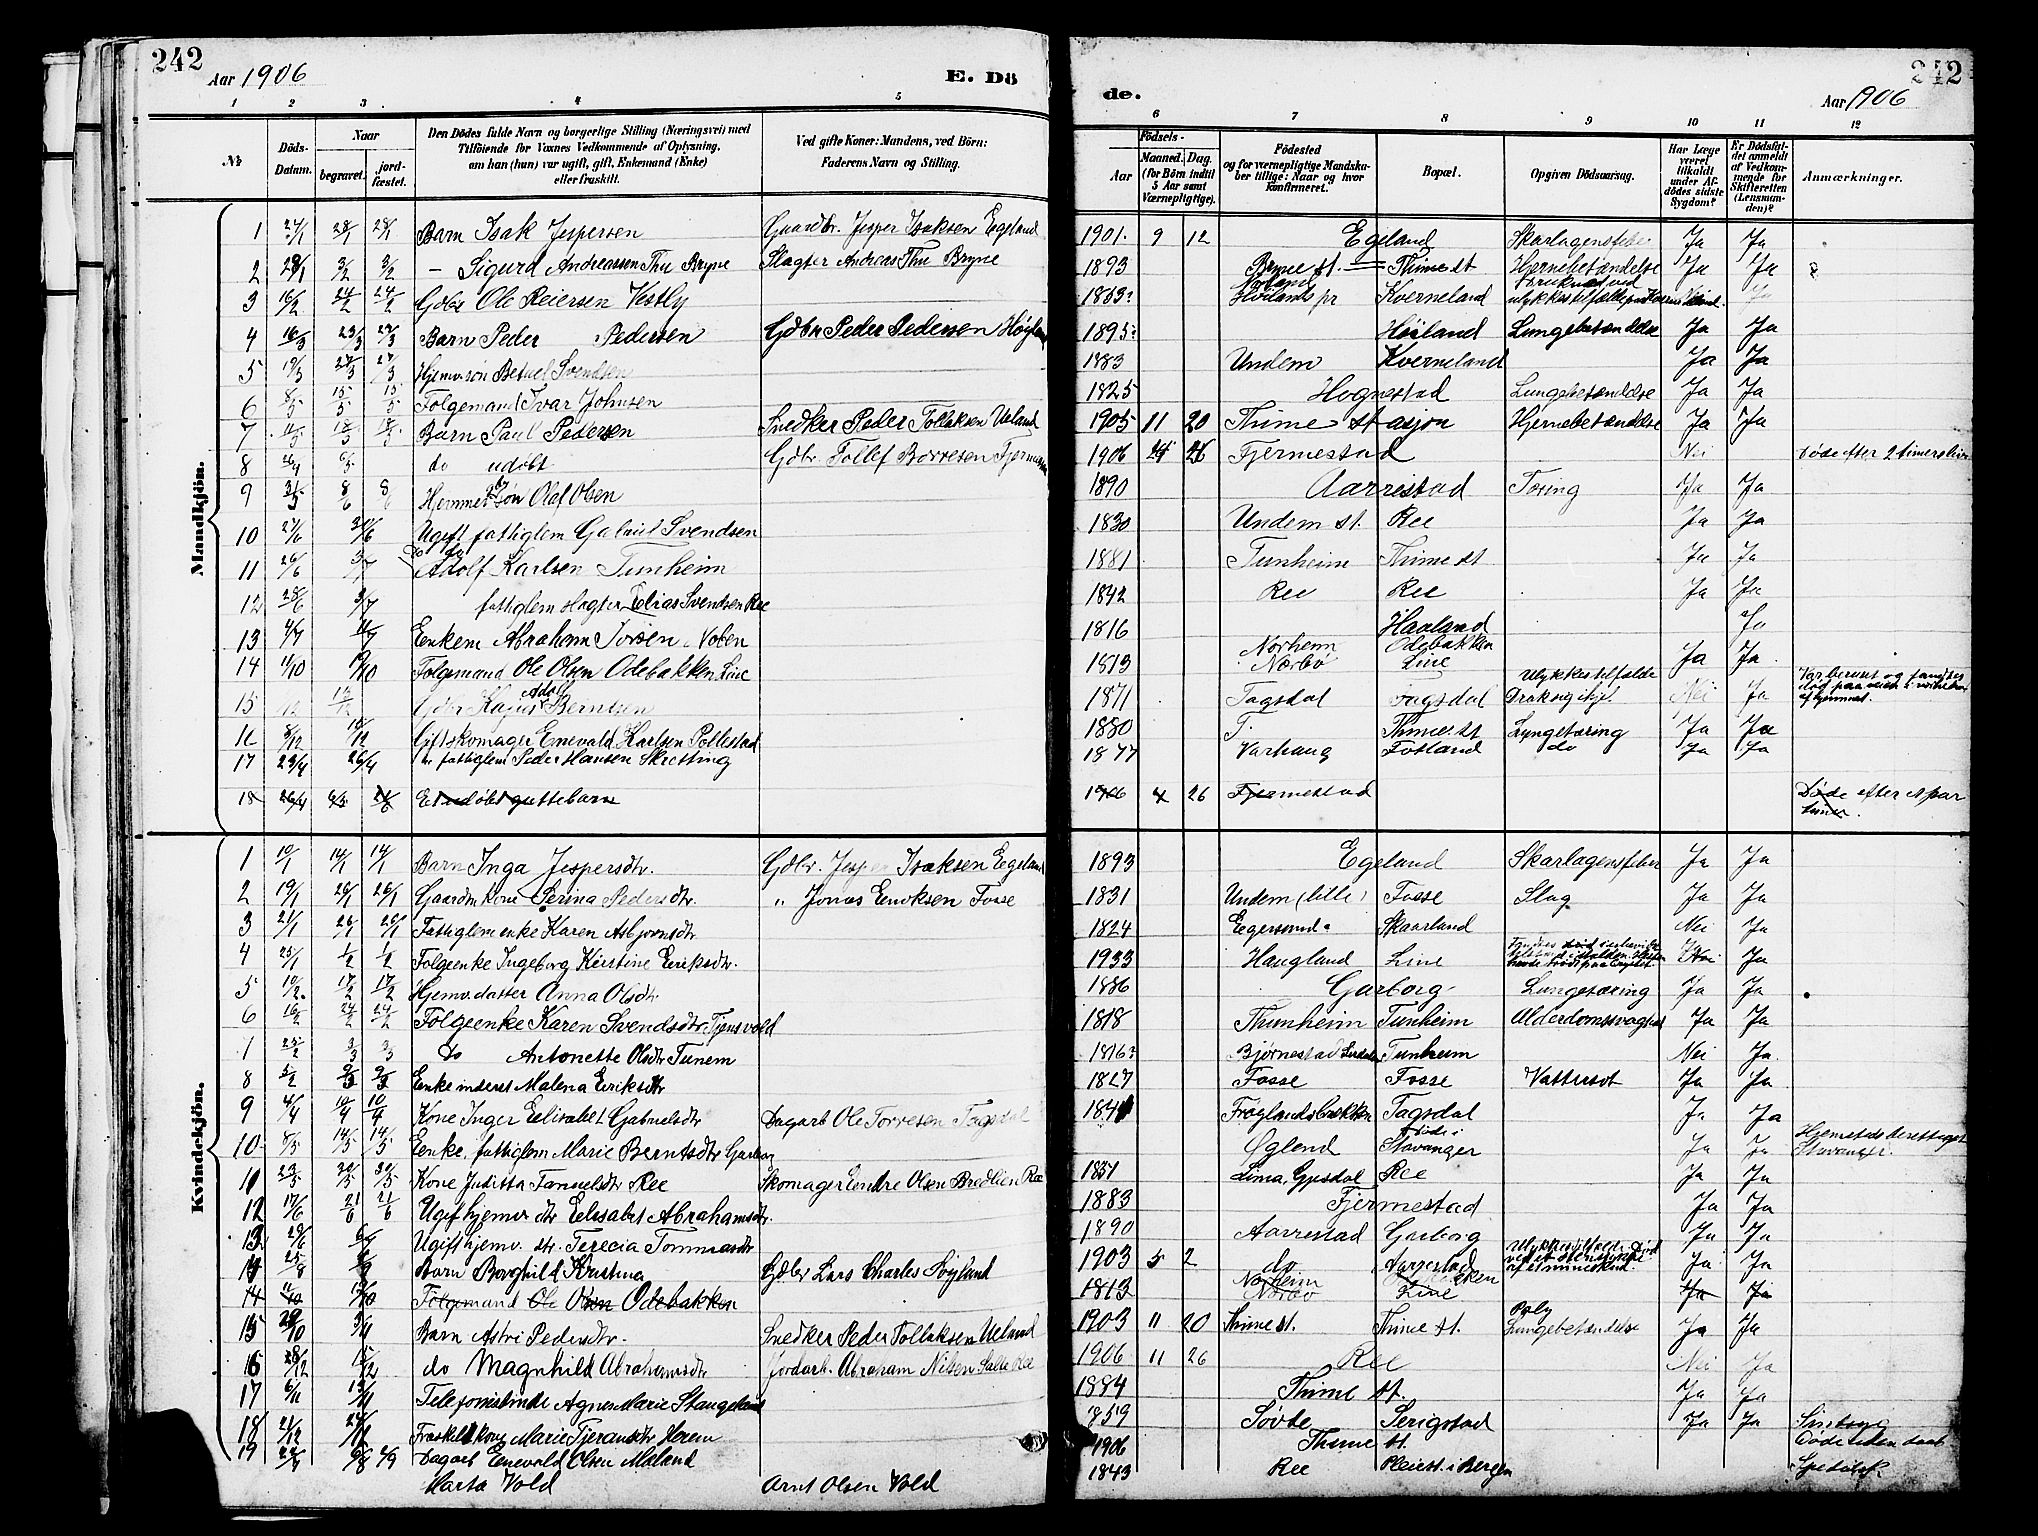 242
Aar 1906
E. Dö
1 2 3 4 5
Naar
Den Dödes fulde Navn og borgerlige Stilling (Næringsvei) med
Tilföiende for Voxnes Vedkommende af Oplysning,
om han (hun) var ugift, gift, Enkemand (Enke)
eller fraskilt.
Ved gifte Koner: Mandens, ved Börn:
Faderens Navn og Stilling.
№
Döds-
Datum.
begravet.
jord-
fæstet.
Mandkjön.
1 27/1 28/1 28/1 Barn Isak Jespersen Gaardbr. Jesper Isaksen Egeland
2 28/1 3/2 3/2 – Sigurd Andreassen Thu Bryne Slagter Andreas Thu Bryne
3 16/2 24/2 24/2 Gdbr Ole Reiersen Vestly
4 16/3 23/3 Barn Peder Pedersen Gdbr Peder Pedersen
5 19/3 27/3 27/3 Hjemv. søn Betuel Svendsen
6 8/5 15/5 15/5 Følgemand Ivar Johnsen
7 11/5 18/5 18/5 Barn Paul Pedersen Snedker Peder Tollaksen Ueland
8 26/4 6/5 do udøbt Gdbr. Tollef Borresen
9 31/5 8/6 8/6 Hjemmev. Søn Olaf Olsen
10 27/6 Ugift fattiglem Gabriel Svendsen
11 26/6 3/7 do Adolf Karlsen Tunheim
12 28/6 3/7 fattiglem slagter Elias Svendsen Ree
13 4/7 11/7 Enkem Abraham
14 11/10 Følgemand Ole Olsen Odebakken Line
15 Kajus Adolf Berntsen
16 8/12 Gift skomager Enevald Karlsen Pollestad
17 23/4 26/4 fattiglem Peder Hansen Skretting
18 26/4 Et udøbt guttebarn
Kvindekjön.
1 10/1 14/1 14/1 Barn Inga Jespersdtr. Gdbr. Jesper Isaksen Egeland
2 19/1 26/1 26/1 Gaardm kone Serina Pedersdtr. " Jonas Enoksen Fosse
3 21/1 26/1 26/1 Fattiglem enke Karen Asbjørnsdtr
4 25/1 1/2 1/2 Følgeenke Ingeborg Kirstine Eeriksdtr.
5 10/2 17/2 17/2 Hjemv. datter Anna Olsdtr
6 16/2 24/2 24/2 Følgeenke Karen Svendsdtr.
25/2 3/3 3/3 do Antonette Olsdtr Tunem
8 9/3 9/3 Enke inderst Malena Eeriksdtr
9 4/4 10/4 10/4 Kone Inger Eelisabet Gabrielsdtr Dagarb Ole Torresen Tagsdal
10 8/5 14/5 14/5 Eenke, fattiglem Marie Berntsdtr Garborg
11 23/5 30/5 30/5 Kone Juditta Tannelsdtr Ree Skomager Eendre Olsen Brødlien Ree
12 17/6 21/6 21/6 Ugift hjemv dtr Eelisabet Abrahamsdtr.
13 29/6 Ugift hjemv. dtr. Terecia Tommasdtr
25/8 Barn Borghild Kristina Gdbr Lars Charles
14 11/10 Følgemand Ole Olsen Odebakken
15 29/10 Barn Astri Pedersdtr. Snedker Peder Tollaksen Ueland
16 28/12 do Magnhild Abrahamsdtr Jordarb. Abraham Nilsen
17 6/11 13/11 Telefonistinde Agnes Marie Stangeland
18 21/12 Fraskilt kone Marie Tjeransdtr Herem
19 Dagarb Eenevald Olsen Maland
Marta Vold Arnt Olsen Vold
242
de.
Aar 1906
6 7 8 9 10 11 12
Födsels-
Aar
Maaned. Dag.
(for Börn indtil
5 Aar samt
Værnepligtige).
Födested
og for værnepligtige Mandska-
ber tillige: Naar og hvor
konfirmeret.
Bopæl.
Opgiven Dödsaarsag.
Har Læge
været
tilkaldt
under Af-
dödes sidste
Sygdom?
Er Dödsfal-
det anmeldt
af Vedkom-
mende for
Skifteretten
(Lensman-
den)?
Anmærkninger.
1901. 9 12 Egeland Skarlagensfeber Ja Ja
1893 Bryne st. Thime st Hjernebetændelse Ja Ja
1863? Høilands pr Kverneland ulykkestilfælde
1895? Höiland Lungebetændelse Ja Ja
1883 Undem Kverneland Ja Ja
1825 Hognestad Lungebetændelse Ja Ja
1905 11 20 Thime stasjon Hjernebetændelse Ja Ja
1906 26 Fjermestad Nei Døde efter 2 timers liv
1890 Aarrestad Tæring Ja Ja
1830 Undem st. Ree Ja Ja
1881 Tunheim Thime st Ja Ja
1842 Ree Ree Ja Ja
1816 Haaland Ja
1813 Norheim Nærbø Odebakken Line Ja Ja
1871 Tagsdal Tagsdal Ulykkestilfælde Drak sig ihjel Nei Ja Var beruset og fandtes død paa veien i nærheden af hjemmet.
1880 T. Thime st Lungetæring Ja Ja
1877 Varhaug Fotland do Ja Ja
1906 4 26 Fjermestad Døde efter et par timer.
1893 Egeland Skarlagensfeber Ja Ja
1831 Undem (lille) Fosse Slag Ja Ja
1824 Egersund Skaarland Nei Ja
1933 Haugland Line Ja
1886 Garborg Lungetæring Ja Ja
1818 Thunheim Tunheim Alderdomssvaghed Ja Ja
1816? Bjørnestad Tunheim Nei Ja
1827 Fosse Fosse Vattersot Ja Ja
Frøylandsbakken Tagsdal Ja Ja
Øglend Døde i Stavanger Ja Ja
Lima, Gjesdal Ree Ja Ja
1883 Fjermestad Ja Ja
1890 Aarrestad Garborg Ja Ja
1903 5 2 do Aarrestad Ja Ja
1813 Norheim Nærbø Line Ja Ja
1903 11 20 Thime st. Thime st. Lungebetændelse Ja Ja
1906 11 26 Ree Nei Ja
1884 Thime st. Ja Ja
1859 Søvde Serigstad Ja Ja Sindssyg
1906 Thime st. Døde uden daab
1843 Ree Pleiest. i Bergen Spedalsk